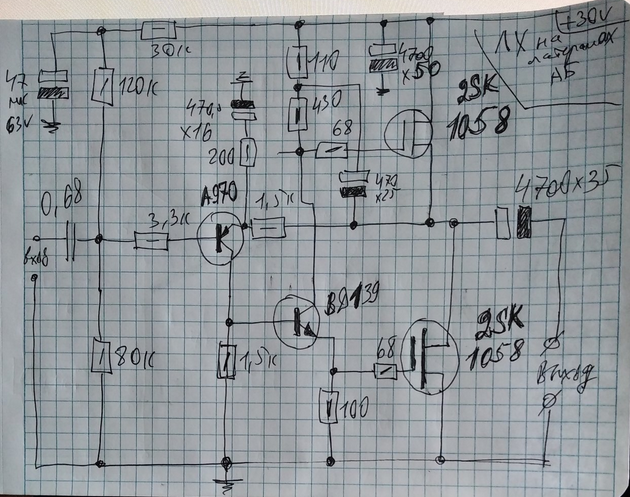 +30V
ЛХ на
латералах
АБ
30к
47
мк
63V
120к
470,0
х16
200
110
430
68
4700
х50
2SK
1058
470
х25
0,68
A970
3,3к
1,5к
4700х35
вход
BD139
80к
1,5к
68
100
2SK
1058
выход